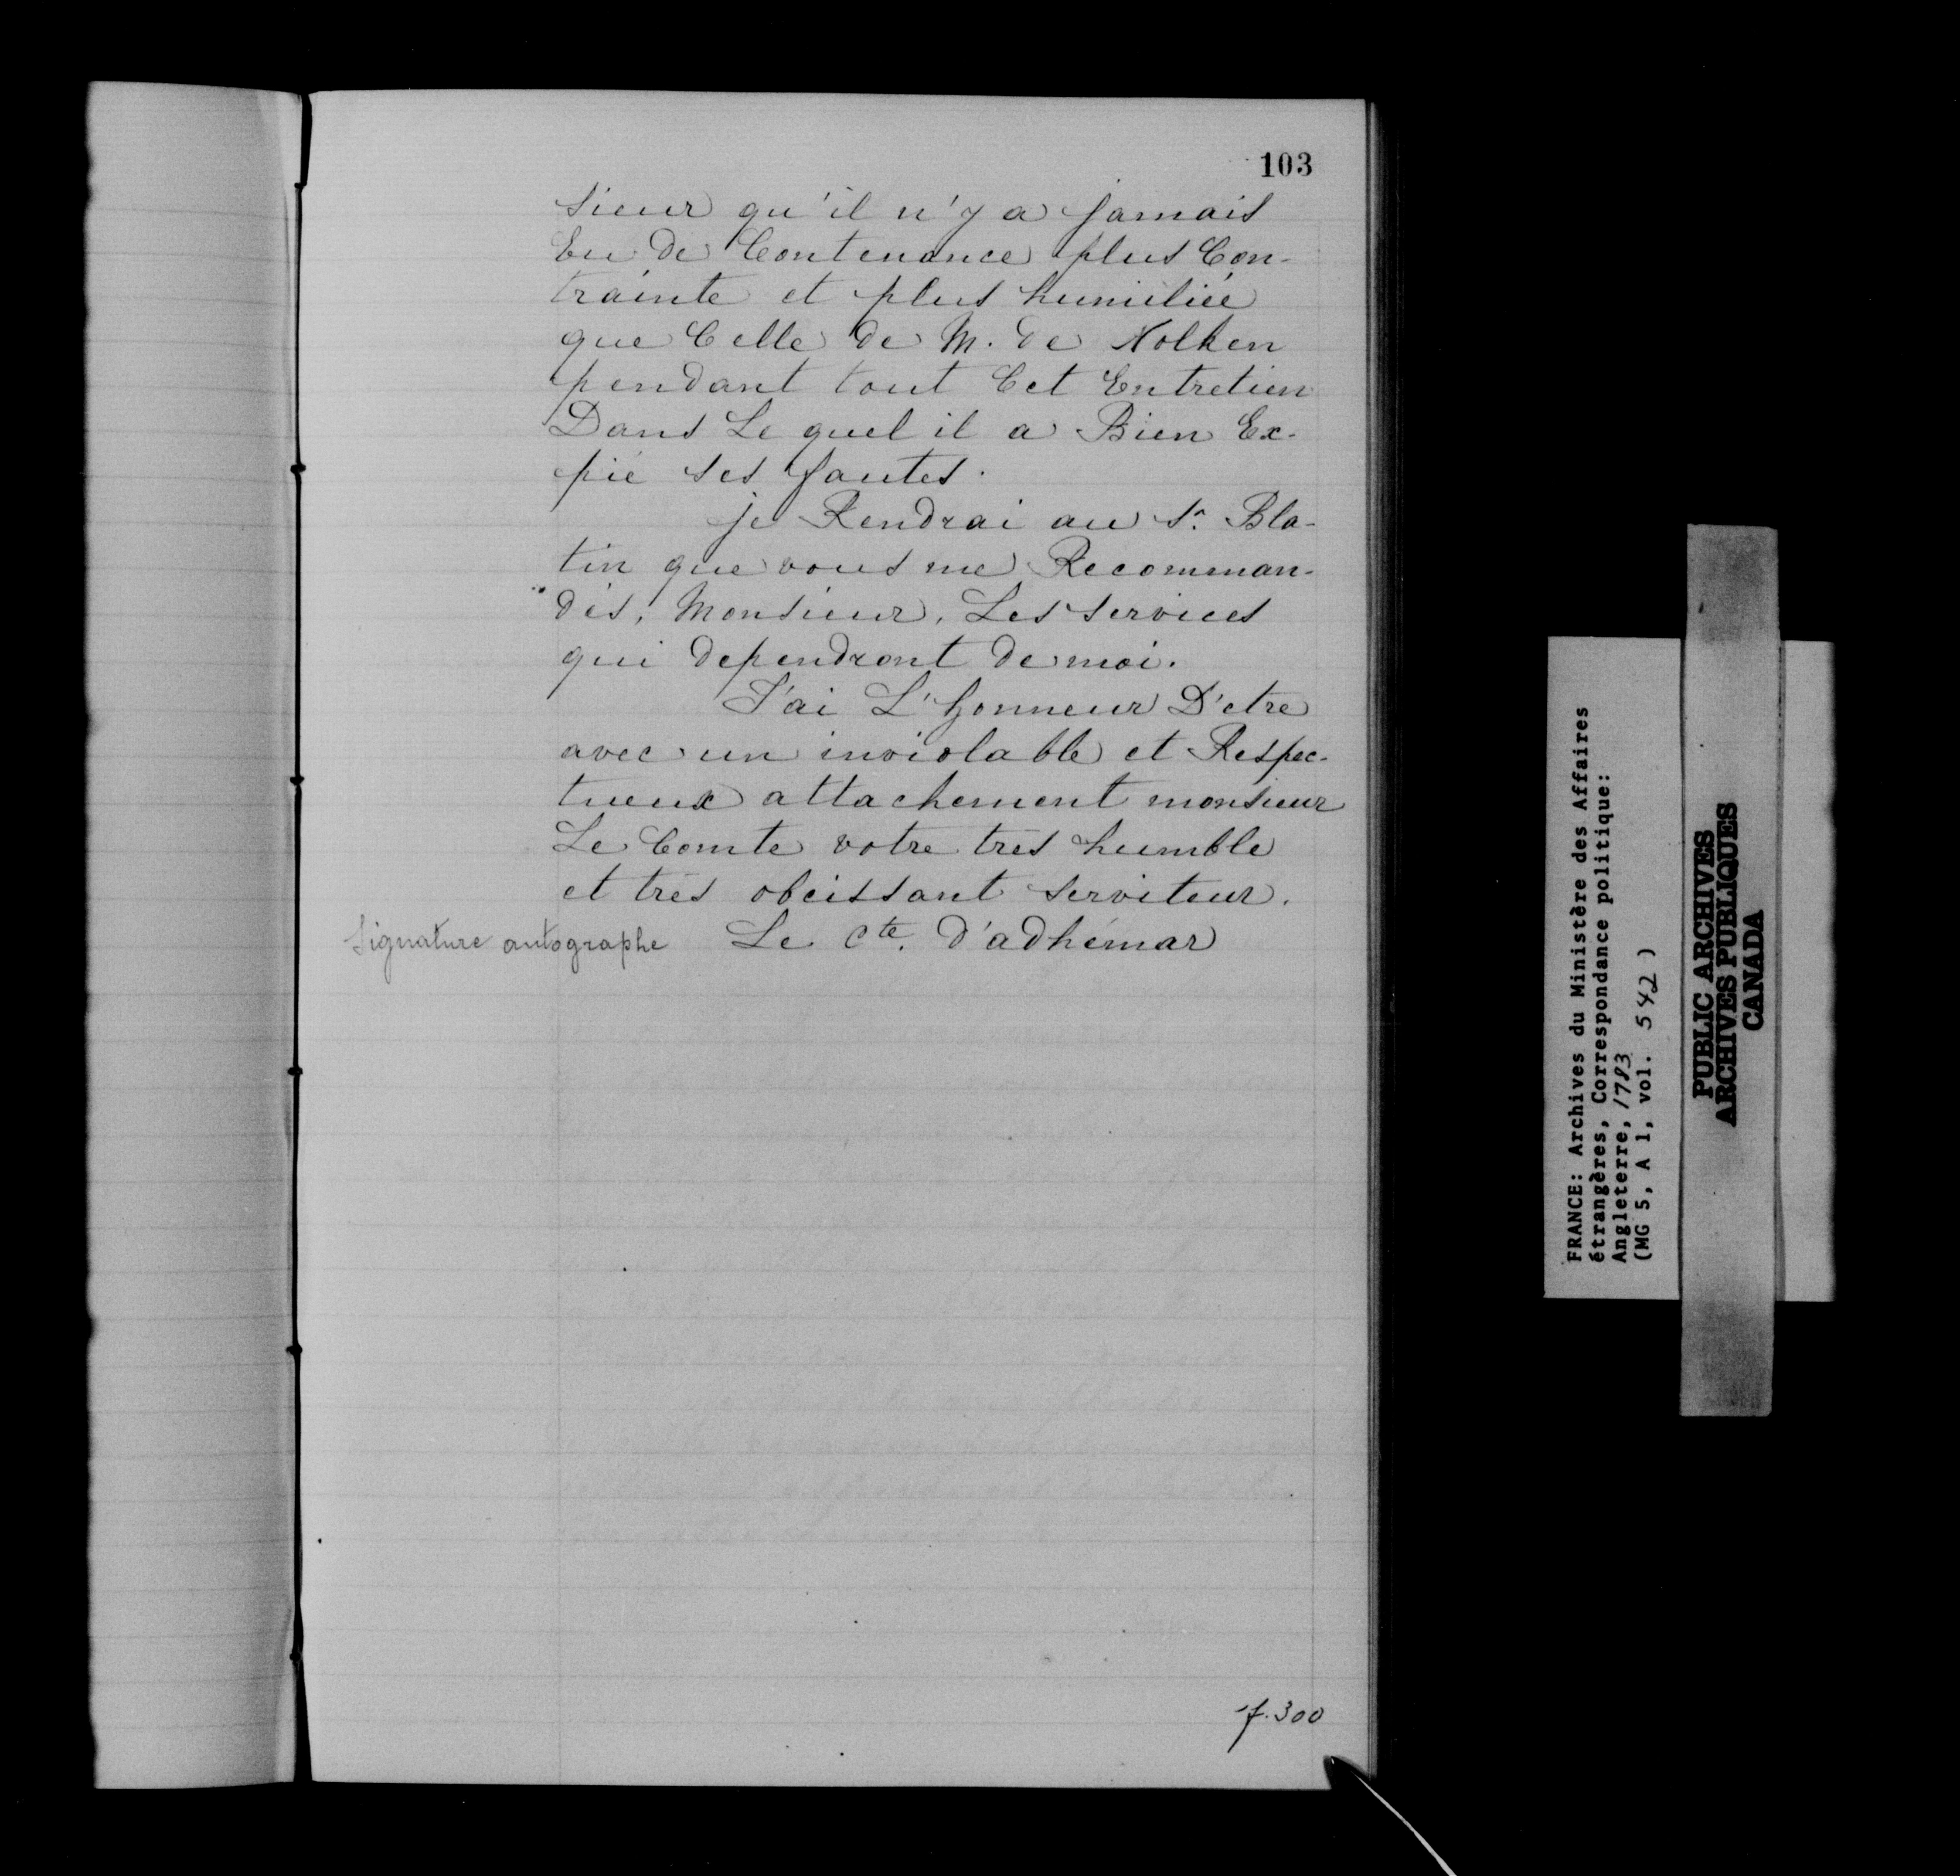 103
sieur qu'il n'y a jamais
Eu de Contenance plus Con-
trainte et plus humiliée
que Celle de M. de Nolken
pendant tout Cet Entretien
Dans Le quel il a Bien Ex-
pié ses fautes.
je Rendrai au Sr. Bla-
tin que vous me Recomman-
dés, Monsieur, Les services
qui dependront de moi.
J'ai L'honneur D'etre
avec un inviolable et Respec-
tueux attachement monsieur
Le Comte votre très humble
et très obeissant serviteur.
Signature autographe Le Cte. d'adhémar
f. 300
FRANCE: Archives du Ministère des Affaires
étrangères, Correspondance politique:
Angleterre, 1783
(MG 5, A 1, vol. 542 )
PUBLIC ARCHIVES
ARCHIVES PUBLIQUES
CANADA